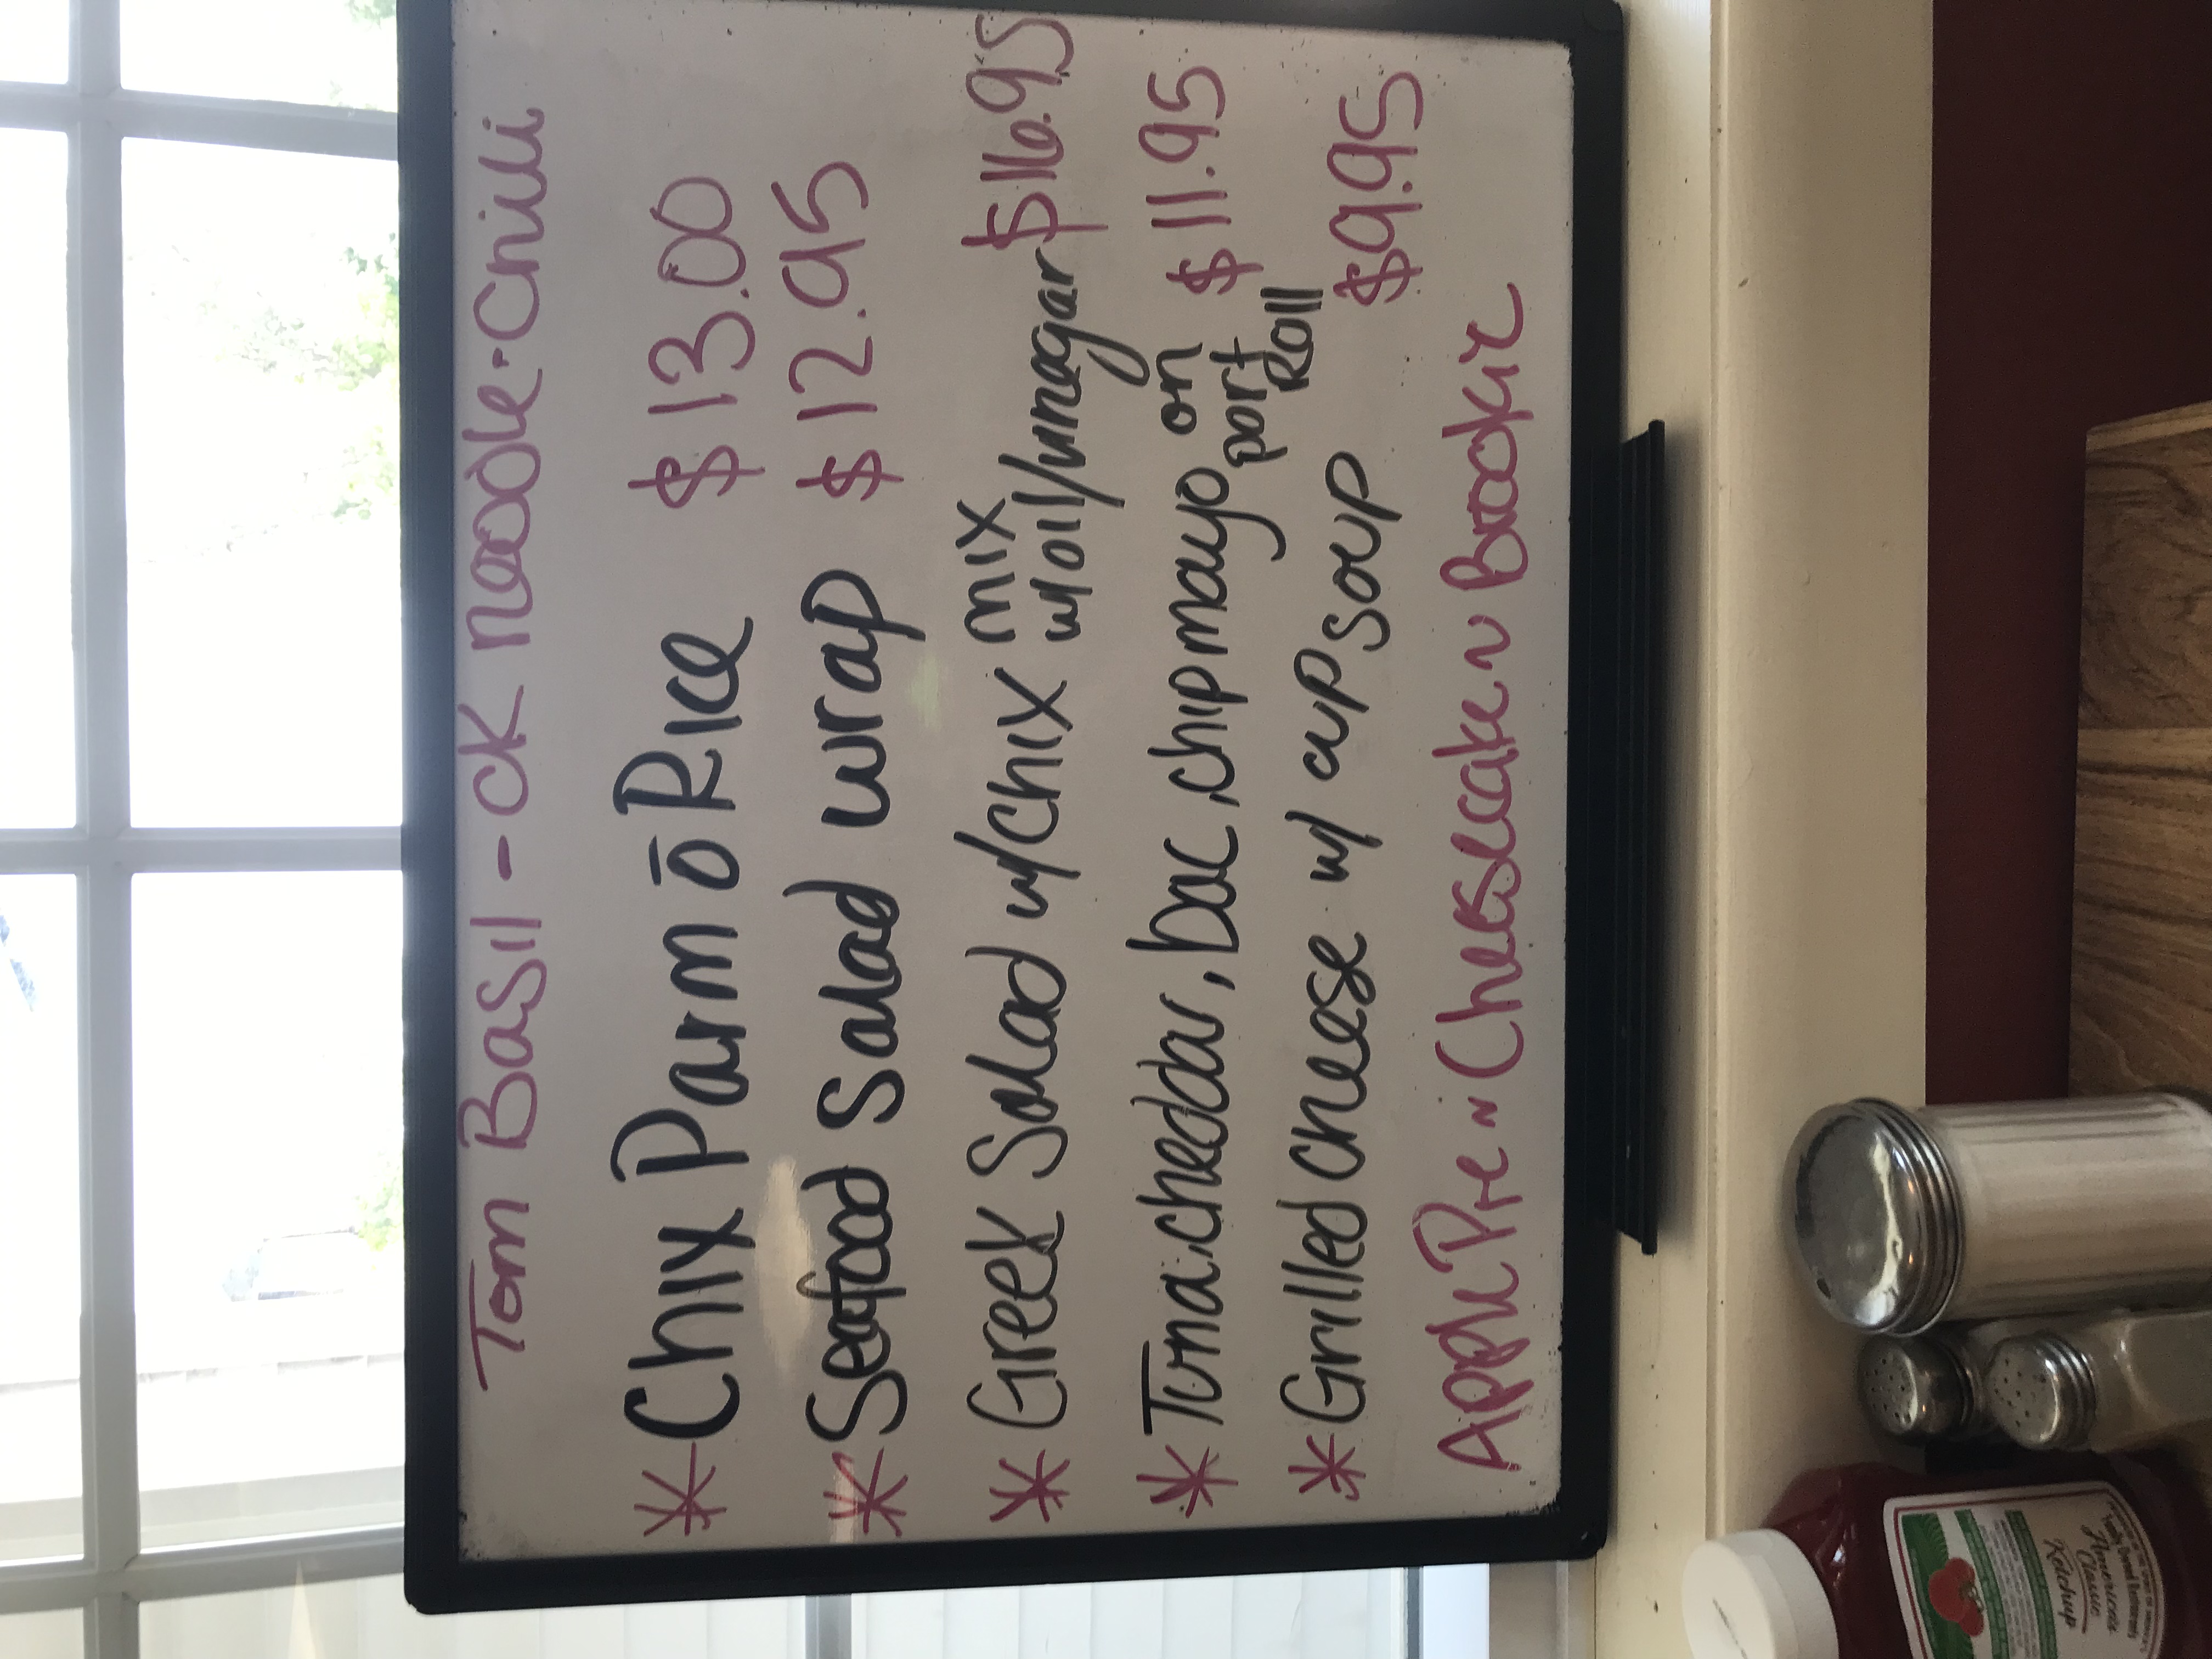 Tom Basil - CK Noodle - Chili
* Chix Parm ō Rice $13.00
* Seafood Salad wrap $12.95
* Greek Salad w/Chix mix w/oil/vinegar $16.95
* Tuna.cheddar, bac, chip mayo on port Roll $11.95
* Grilled cheese w/ cup soup $9.95
Apple Pie ~ Cheesecake ~ Brookie
Family Owned Restaurants
American
Classic
Ketchup